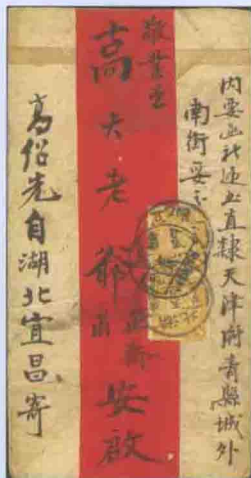 内要函祈速上直隸天津府青縣城外
南街妥交
敬業堂
高大老爺 安啟
高紹先自湖北宜昌寄